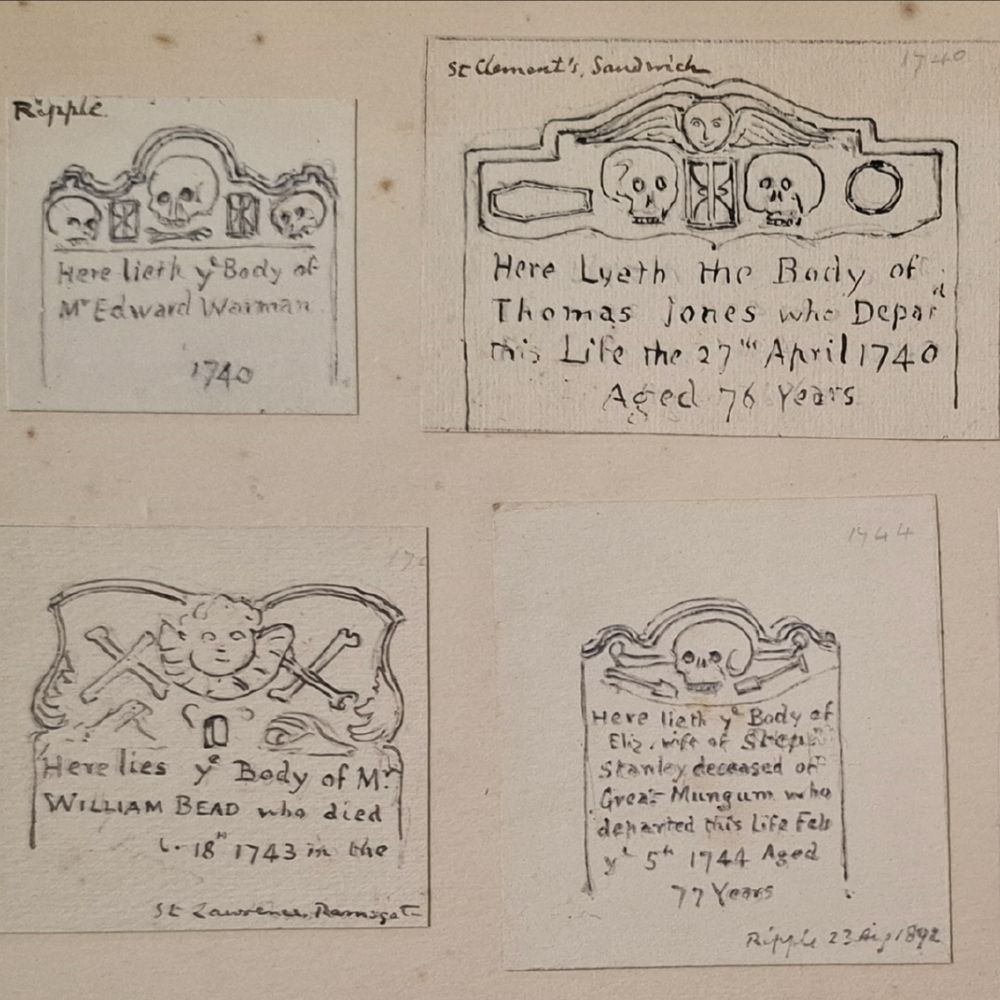 Ripple.
Here lieth yᵉ Body of
Mʳ Edward Warman
1740
1740
St Clement's, Sandwich
Here Lyeth the Body of
Thomas Jones who Deparᵈ
this Life the 27ᵗʰ April 1740
Aged 76 Years
Here lies yᵉ Body of Mʳ
WILLIAM BEAD who died
18ᵗʰ 1743 in the
St Lawrence, Ramsgat
1744
Here lieth yᵉ Body of
Eliz. wife of Step
Stanley deceased of
Great Mungum who
departed this Life Feb
yᵉ 5ᵗʰ 1744 Aged
77 Years
Ripple 23 Aug 1892